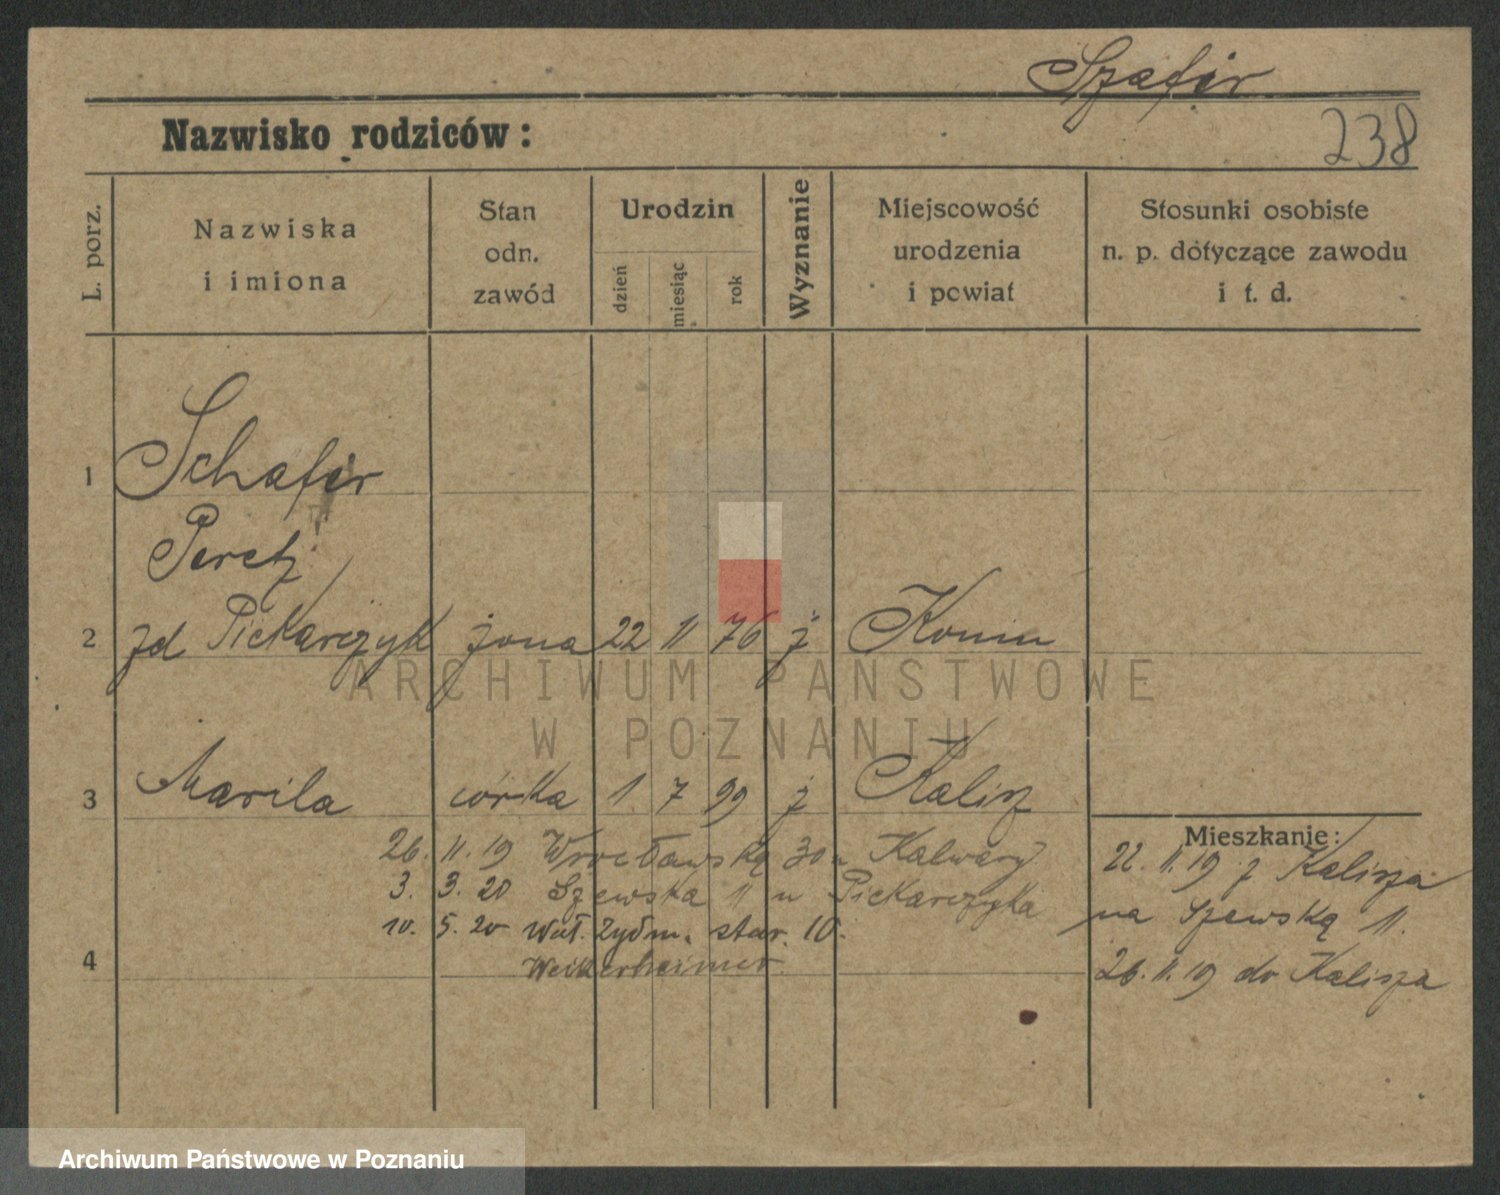 Szafir
Nazwisko rodziców:
238
L. porz.
Nazwiska
i imiona
Stan
odn.
zawód
Urodzin
dzień
miesiąc
rok
Wyznanie
Miejscowość
urodzenia
i powiat
Stosunki osobiste
n. p. dotyczące zawodu
i t. d.
1 Schafir
Peretz
2 zd Piekarczyk żona 22 11 76 j Konin
3 Marila córka 1 7 99 j Kalisz
Mieszkanie:
26. 11. 19 Wrocławską 30 u Kalwary
22. 11. 19 z Kalisza
3. 3. 20 Szewska 11 u Piekarczyka
na Szewską 11.
10. 5. 20 Wał. Zygm. star. 10.
4 Weikersheimer
26. 11. 19 do Kalisza
ARCHIWUM PAŃSTWOWE
W POZNANIU
Archiwum Państwowe w Poznaniu